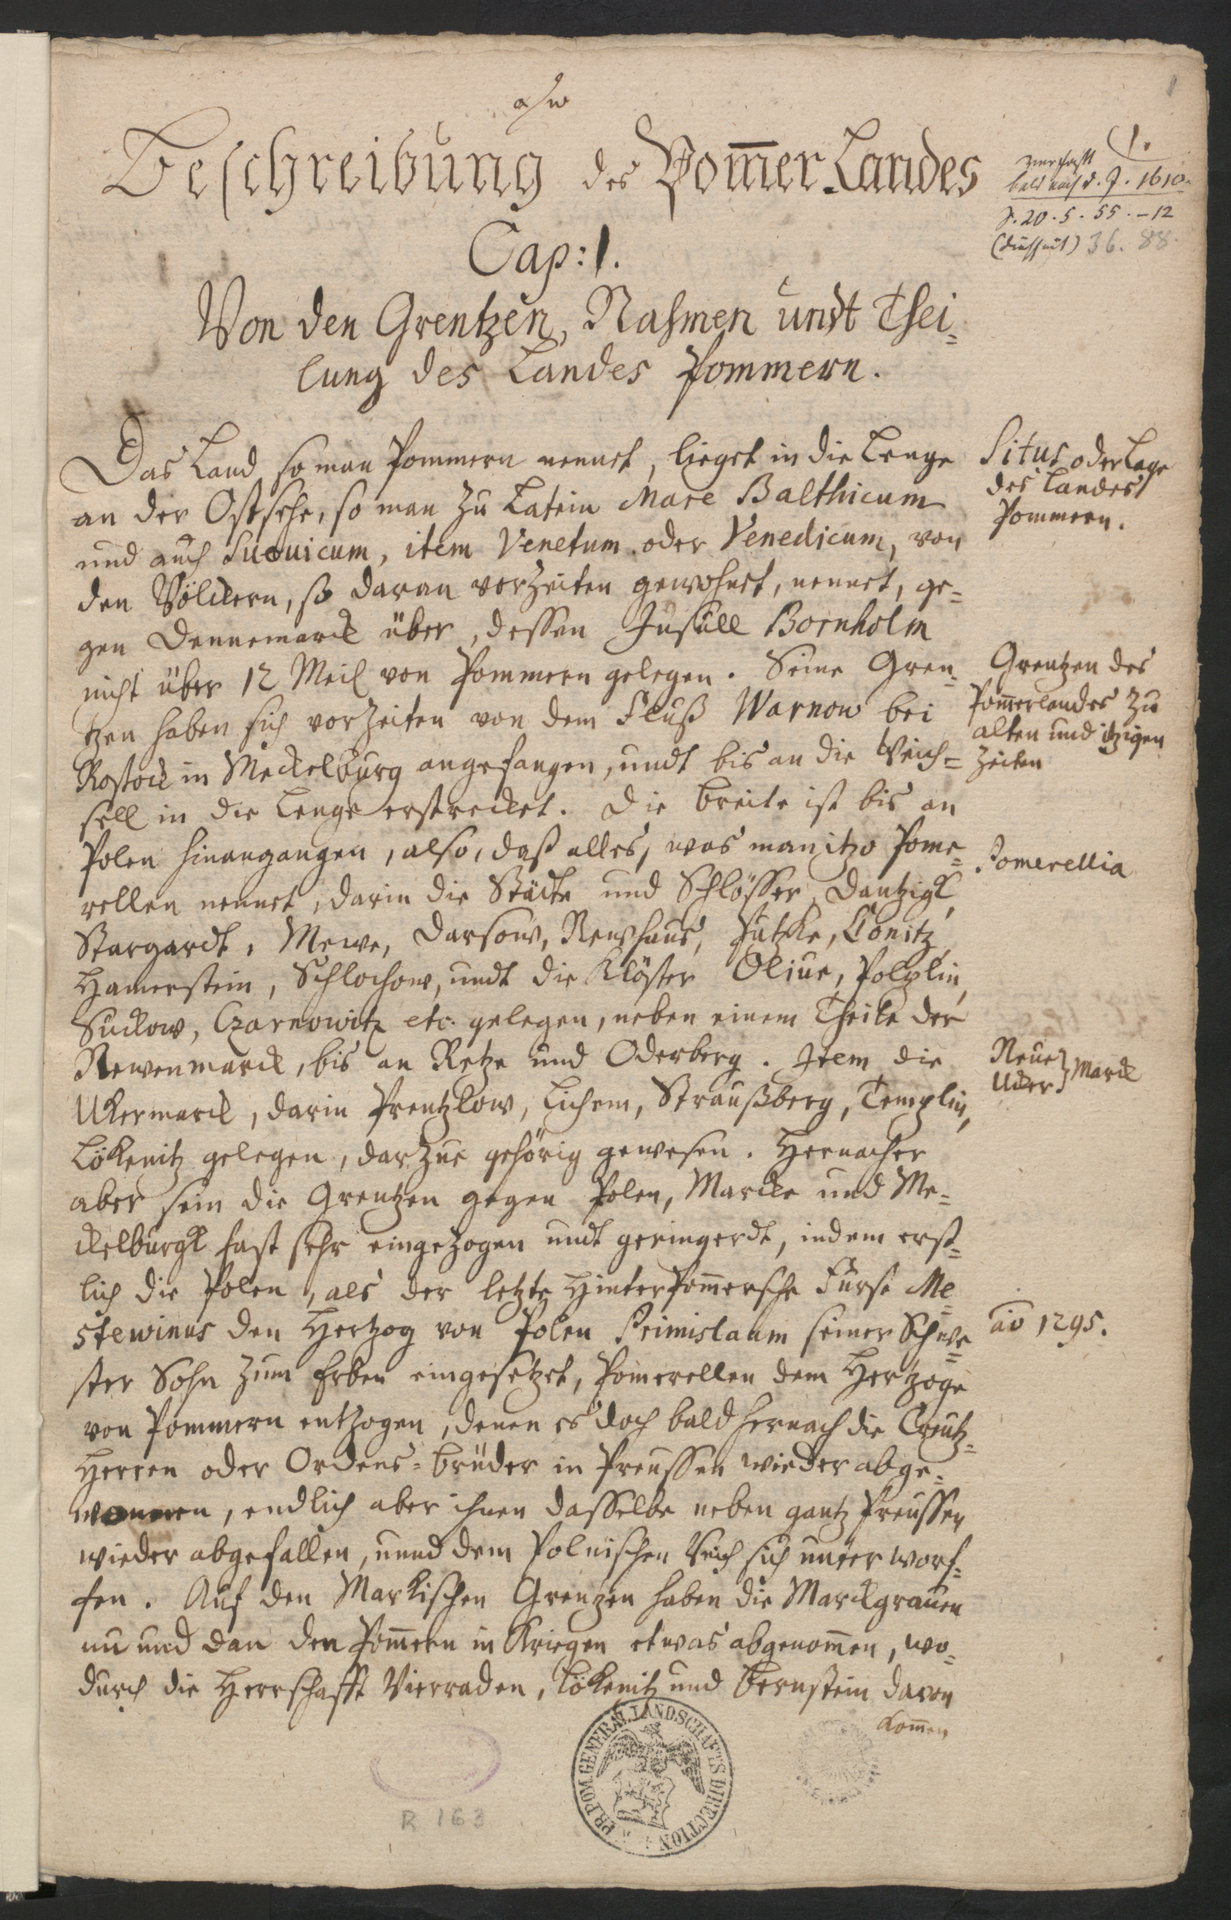 Beschreibung des Pom̄erLandes
1.
bald nach d. J. 1610.
S. 20. 5. 55. -12
36. 88.
Cap: 1.
Von den Grentzen, Nahmen undt Thei=
lung des Landes Pommern.
Das Land so man Pommern nennet, lieget in die Lenge
an der Ostsehe, so man zu Latein Mare Balthicum
und auch Sueuicum, item Venetum oder Venedicum, von
den Völckern, so daran vorzeiten gewohnet, nennet, ge=
gen Dennemarck über, dessen Insull Bornholm
nicht über 12 Meil von Pommern gelegen. Seine Gren=
tzen haben sich vorzeiten von dem Fluß Warnow bei
Rostock in Meckelburg angefangen, undt bis an die Weich=
sell in die Lenge erstrecket. Die breite ist bis an
Polen hinangangen, also, daß alles, was man itzo Pome=
rellen nennet, darin die Städte und Schlösser, Dantzigk,
Stargardt, Mewe, Darsow, Newhaus, Putzke, Conitz,
Hamerstein, Schlochow, undt die Klöster Oliue, Polplin,
Suckow, Czarnowitz etc. gelegen, neben einem Theile der
Newenmarck, bis an Netze und Oderberg. Item die
Ukermarck, darin Prentzlow, Lichem, Straußberg, Templin,
Lökenitz gelegen, darzue gehörig gewesen. Hernacher
aber sein die Grentzen gegen Polen, Marcke und Me=
ckelburgk fast sehr eingezogen undt geringerdt, indem erst=
lich die Polen, als der letzte HinterPom̄ersche Fürst Me=
stewinus den Hertzog von Polen Primislaum seiner Schwe=
ster Sohn zum Erben eingesetzet, Pomerellen dem Hertzoge
von Pommern entzogen, denen es doch bald hernach die Creutz=
Herren oder Ordens=brüder in Preussen wieder abge=
wonnen, endlich aber ihnen dasselbe neben gantz Preussen
wieder abgefallen, unnd dem Polnischen Reich sich unterworf=
fen. Auf den Markischen Grentzen haben die Marckgrauen
nu und dan den Pom̄ern in Kriegen etwas abgenom̄en, wo=
durch die Herrschafft Vierraden, Lökenitz und Bernstein davon
kom̄en
Situs oder Lage
des Landes
Pommern.
Grentzen des
Pom̄erlandes zu
alten und itzigen
Zeiten
Pomerellia
Neue } Marck
Ucker
aō 1295.
PR. POM. GENERAL LANDSCHAFTS DIRECTION
R 163